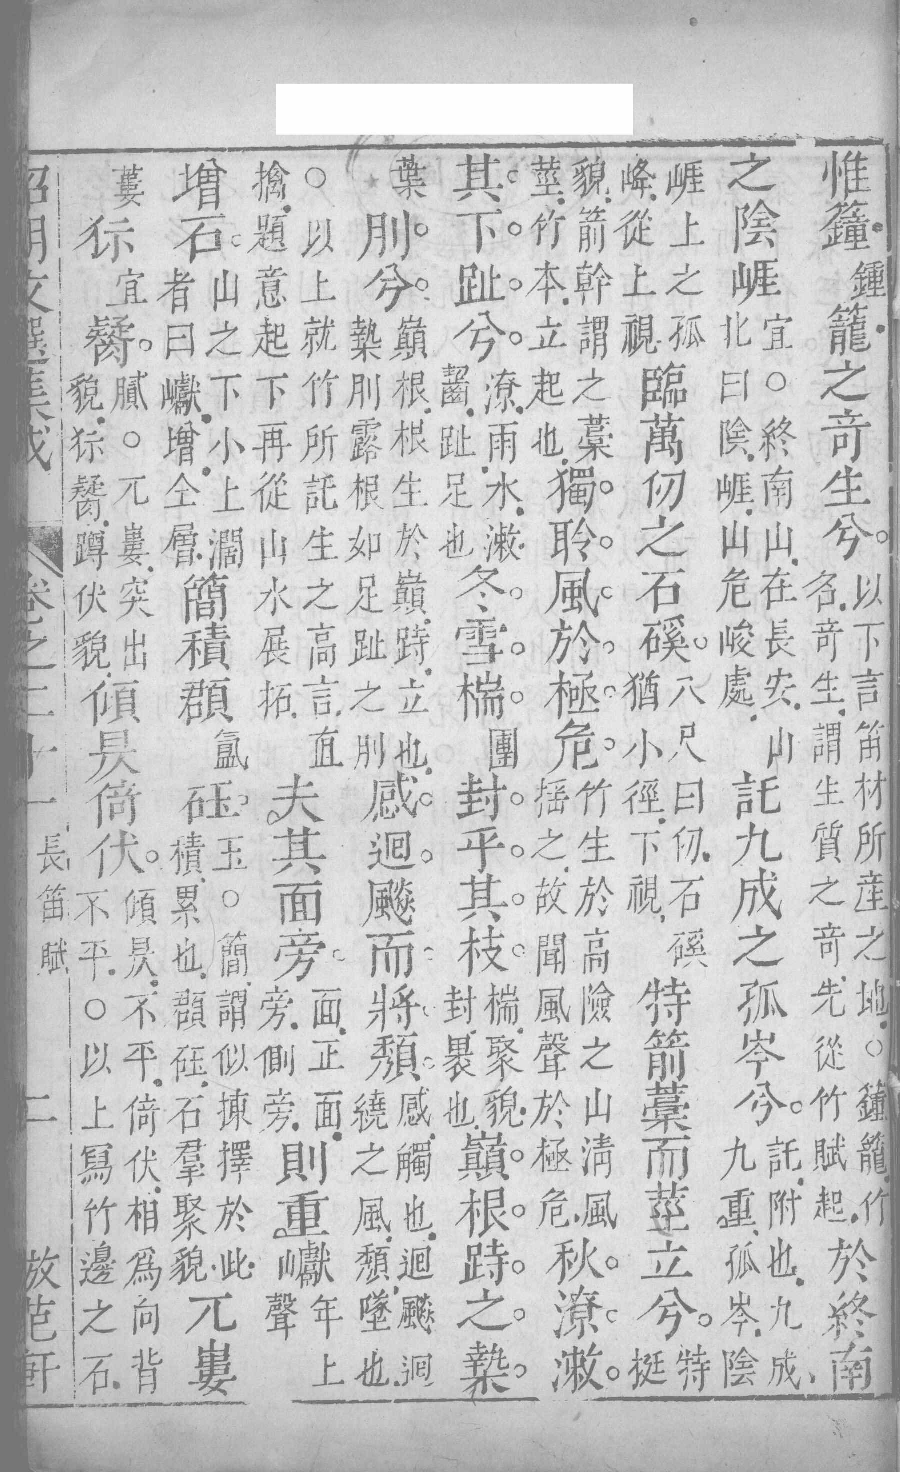 惟籦鍾籠之奇生兮以下言笛材所産之地○籦籠竹名奇生謂生質之奇先從竹賦起於終南
之陰崕宜○終南山在長安山北曰陰崕山危峻處託九成之孤岑兮託附也九成九重孤岑陰
崕上之孤峰從上視臨萬仞之石磎八尺曰仞石磎猶小徑下視特箭藁而莖立兮特挺
貌箭幹謂之藁莖竹本立起也獨聆風於極危竹生於高險之山淸風搖之故聞風聲於極危秋潦漱
其下趾兮潦雨水漱齧趾足也冬雪揣團封乎其枝揣聚貌封裹也巔根跱之槷
葉刖兮巔根根生於巔跱立也槷刖露根如足趾之刖感迴飈而將頽感觸也迴飈迴繞之風頽墜也
○以上就竹所託生之高言直擒題意起下再從山水展拓夫其面旁面正面旁側旁則重巘年上聲
增石山之下小上濶者曰巘增仝層簡積頵氳砡玉○簡謂似揀擇於此積累也頵砡石羣聚貌兀婁
蔞狋宜觺膩○兀婁突出貌狋觺蹲伏貌傾昃倚伏傾昃不平倚伏相爲向背不平○以上寫竹邊之石
昭明文選集成 卷之二十一 長笛賦 二 倣范軒